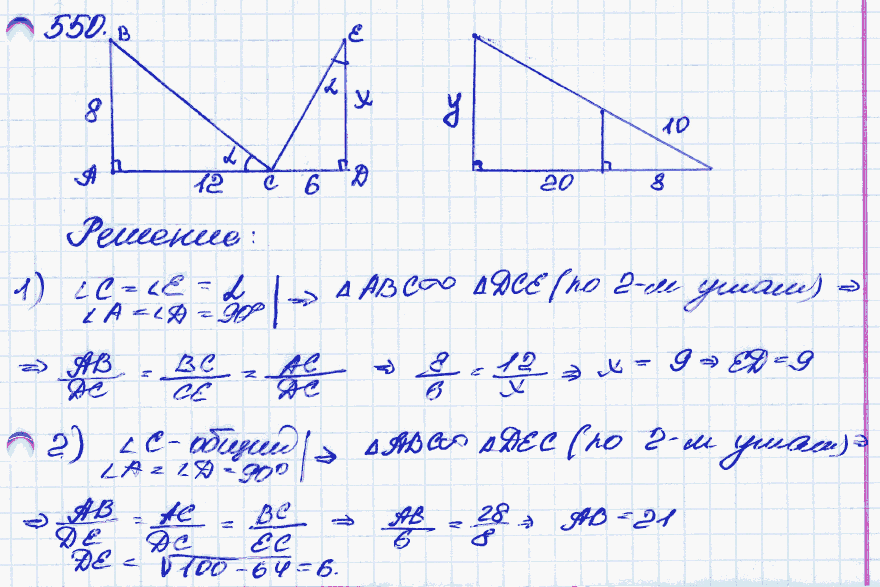 550.
B
E
8
α
α
x
A
12
C
6
D
y
10
20
8
Решение:
1) ∠C = ∠E = α
∠A = ∠D = 90° | ⇒ △ABC ∾ △DCE (по 2-м углам) ⇒
⇒ AB/DC = BC/CE = AC/DC ⇒ 8/6 = 12/x ⇒ x = 9 ⇒ ED = 9
2) ∠C - общий
∠A = ∠D = 90° | ⇒ △ABC ∾ △DEC (по 2-м углам) ⇒
⇒ AB/DE = AC/DC = BC/EC ⇒ AB/6 = 28/8 ⇒ AB = 21
DE = √100 - 64 = 6.